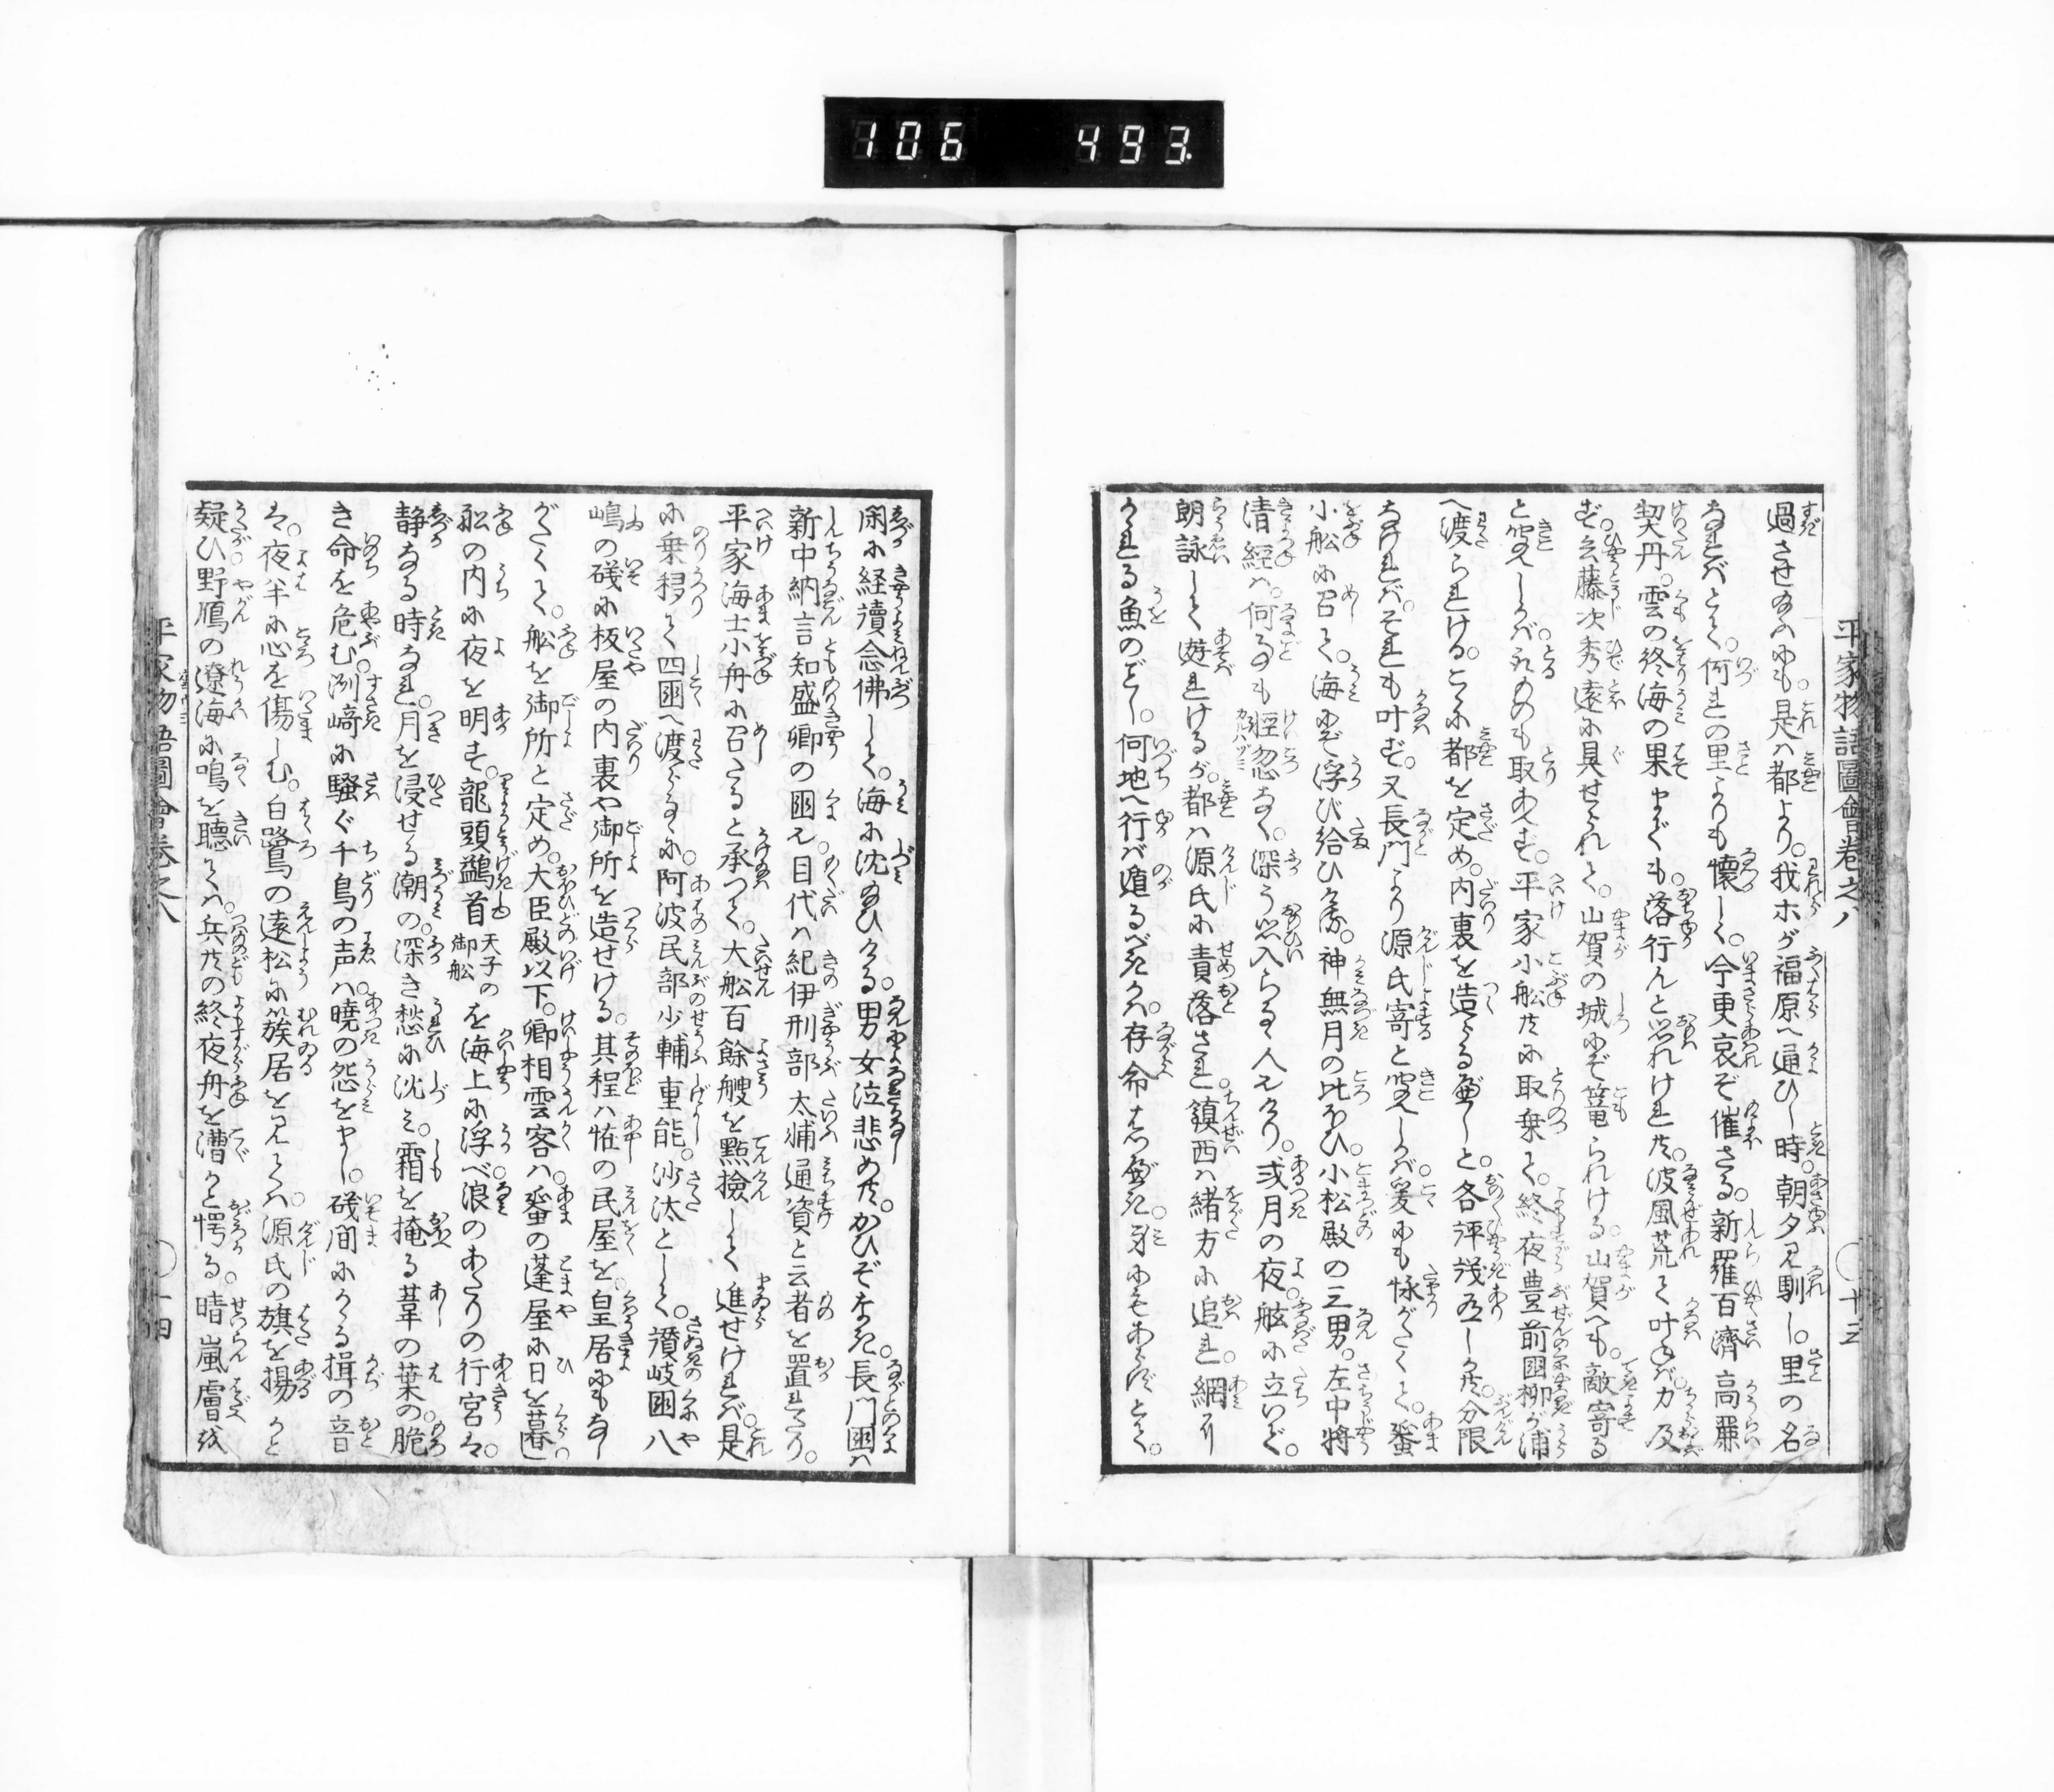 106 493.
平家物語圖會巻之八 ○十三
過させ給ふにも。是ハ都より。我ホが福原へ通ひし時。朝夕見馴し。里の名
なれバとて。何れの里よりも懐しく。今更哀ぞ催さる。新羅百濟高麗
契丹。雲の終海の果までも。落行んと思れけれ共。波風荒て叶ねバ力及
ず。兵藤次秀遠に具せられて。山賀の城にぞ篭られける。山賀へも。敵寄る
と聞えしかバ。取ものも取あへず。平家小舩共に取乗て。終夜豊前國柳が浦
へ渡られける。こゝに都を定め。内裏を造らるべしと。各評議有しか共。分限
なけれバ。それも叶ず。又長門より源氏寄と聞えしかバ。爰にも怺がたくて。蜑
小舩に召て。海にぞ浮び給ひける。神無月の比ほひ。小松殿の三男。左中将
清經ハ。何事も軽忽なく。深う思入らるゝ人也けり。或月の夜。舷に立いで。
朗詠して遊れけるが。都ハ源氏に責落され。鎮西ハ緒方に追れ。網に
かゝれる魚のごとし。何地へ行バ遁るべきかハ。存命はつべき身にもあらずとて。
閑に経讀念佛して。海に沈給ひける。男女泣悲め共。かひぞなき。長門國ハ
新中納言知盛卿の國也。目代ハ紀伊刑部太輔通資と云者を置れたり。
平家海士小舟に召たると承つて。大舩百餘艘を點撿して進せけれバ。是
に乗移て四國へ渡らるゝに。阿波民部少輔重能。沙汰として。讃岐國八
嶋の礒に板屋の内裏や御所を造せける。其程ハ恠の民屋を。皇居にもなし
がたくて。舩を御所と定め。大臣殿以下。卿相雲客ハ。蜑の蓬屋に日を暮し。
舩の内に夜を明す。龍頭鷁首天子の御舩を海上に浮べ。浪のあたりの行宮は。
静なる時なし。月を浸せる潮の。深き愁に沈ミ。霜を掩る葦の葉の。脆
き命を危む。洲﨑に騒ぐ千鳥の声ハ。曉の怨をまし。礒間にかゝる揖の音
は。夜半に心を傷しむ。白鷺の遠松に簇居を見てハ。源氏の旗を揚かと
疑ひ。野鴈の遼海に鳴を聴てハ。兵共の終夜舟を漕かと愕る。晴嵐膚を
平家物語圖會巻之八 ○十四